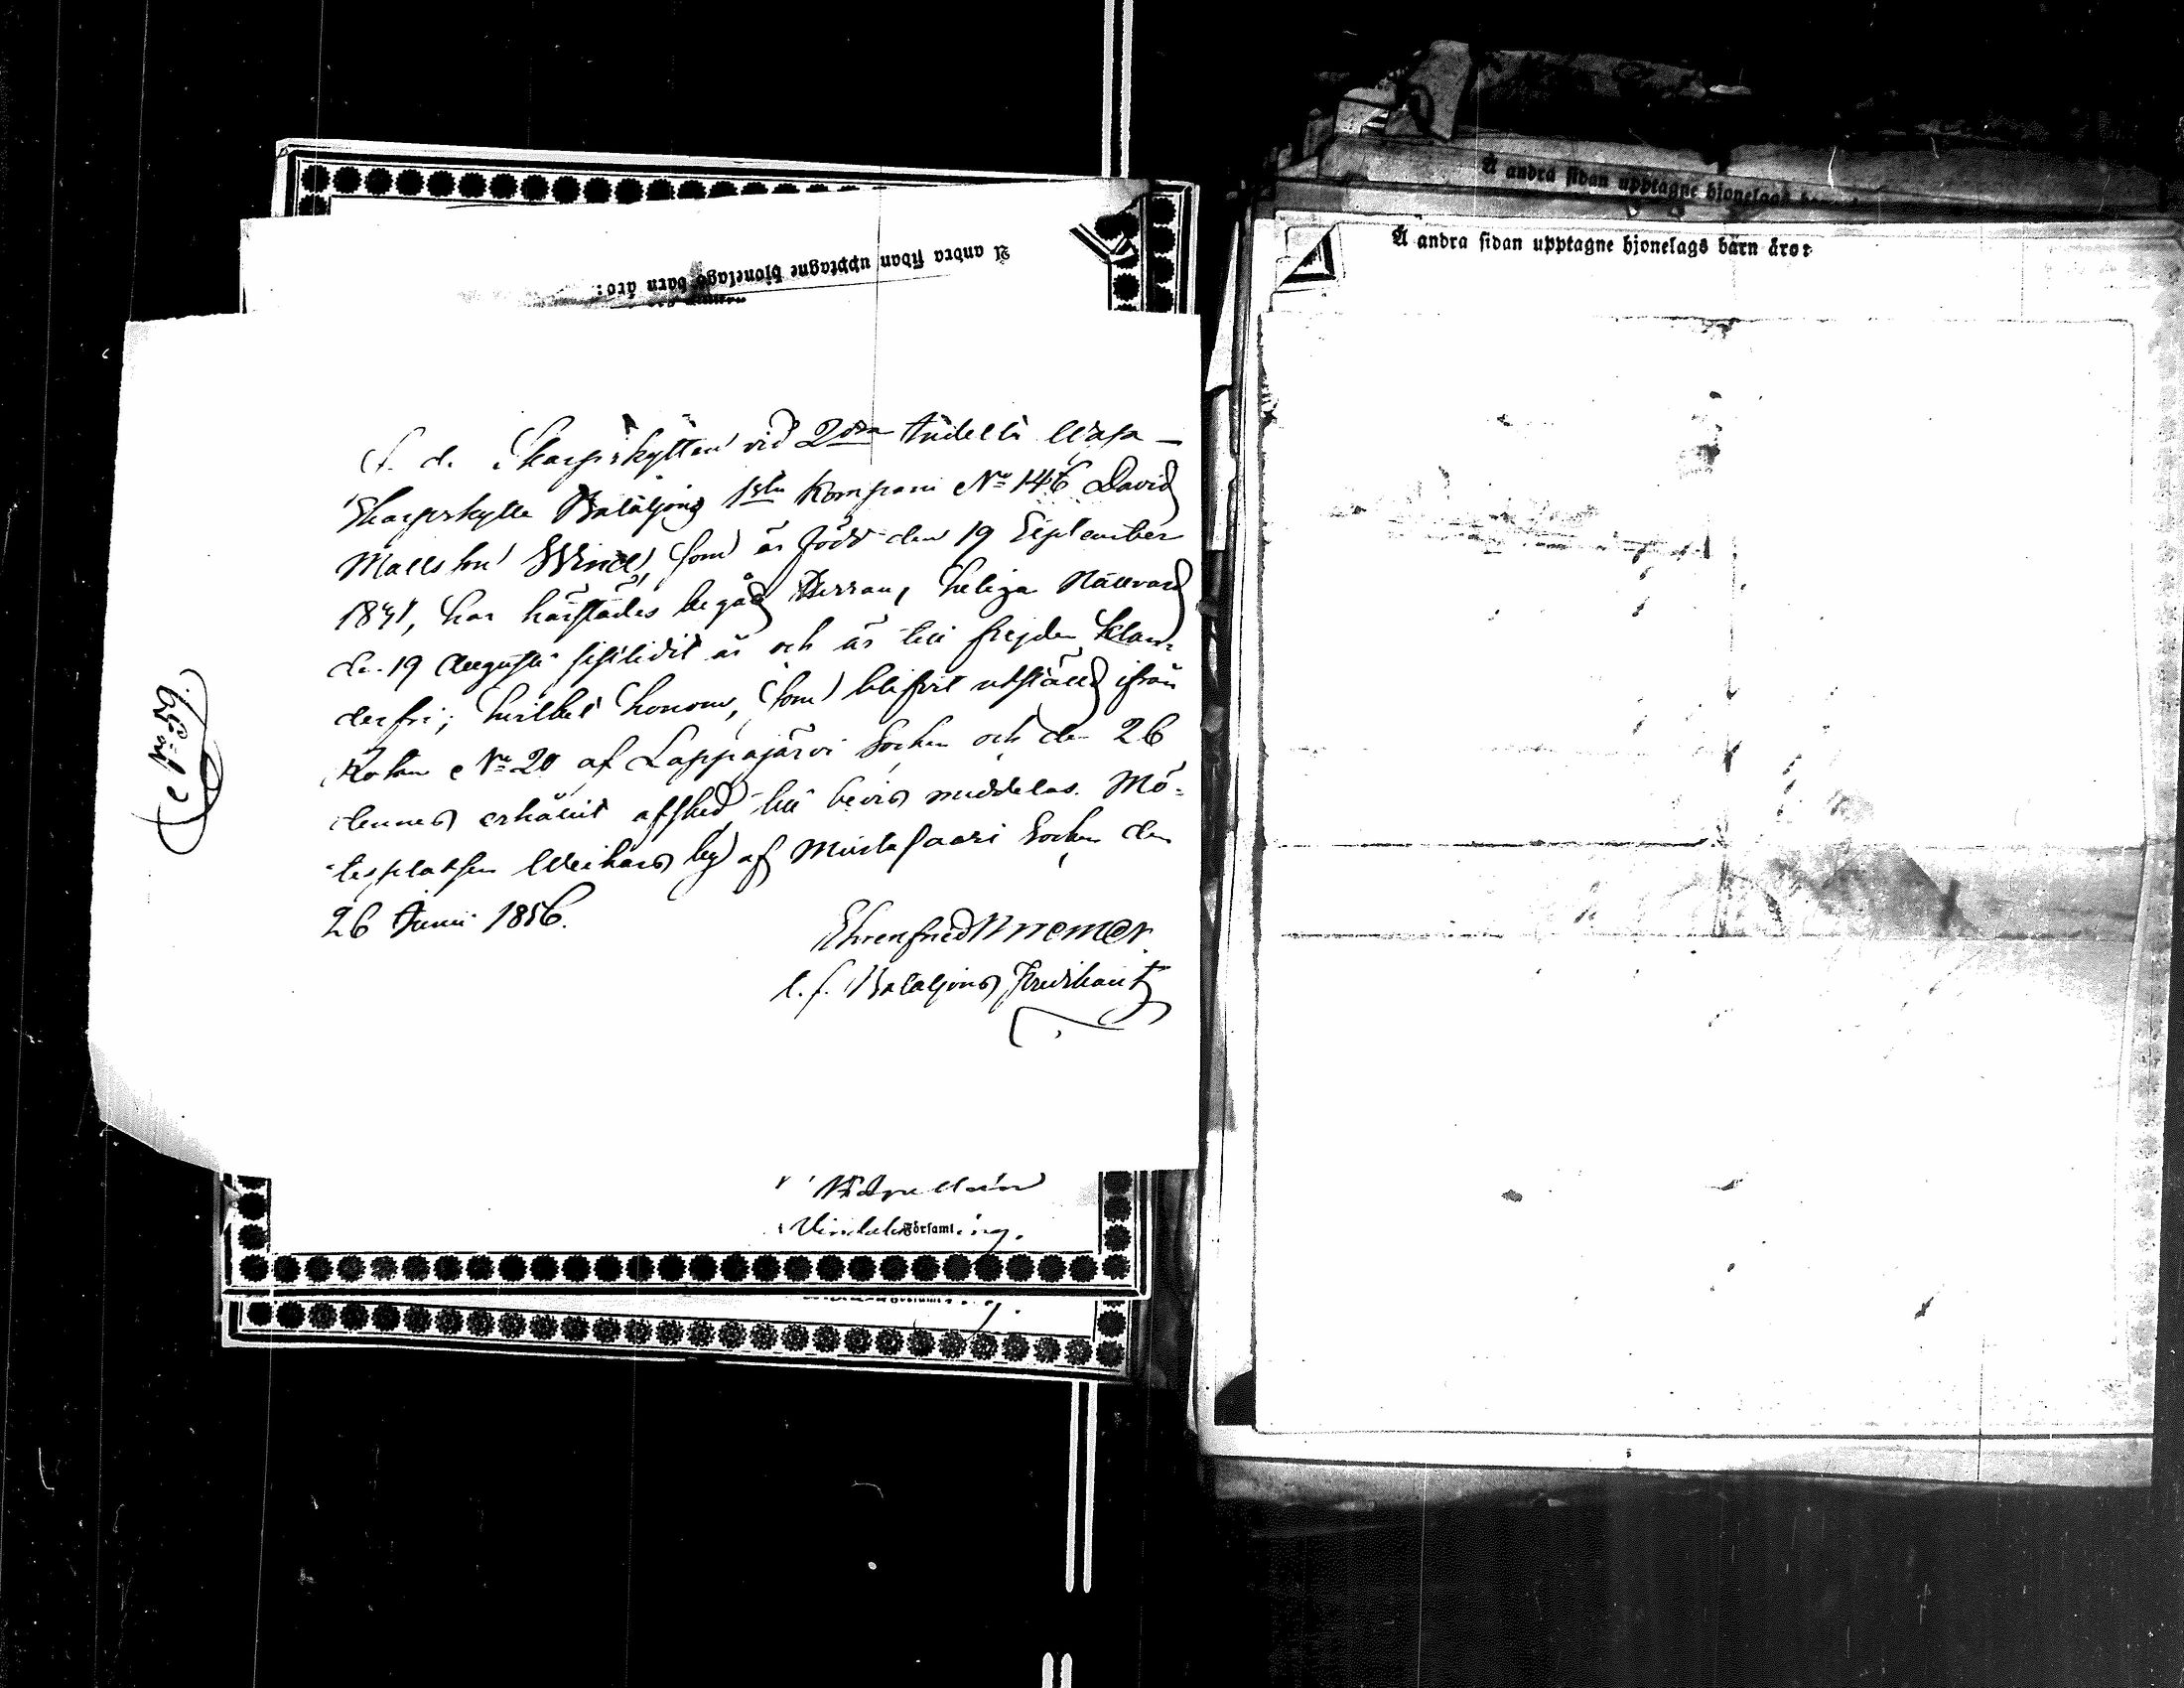 Å andra sidan upptagne hjonelags barn äro:
F. d. Skarpskytten vid 2dra Indelta Wasa-
Skarpskytte Bataljons 1sta Kompani No 146 David
Matts son Wind, som är född den 19 September
1831, har härstädes begått Herrans heliga Nattvard
den 19 Augusti sistlidit år och är till frejden klan-
derfri; hvilket honom, som blifvit utstäld ifrån
Rotan No 20 af Lappajärvi Socken och den 26
dennes erhållit afsked, till bevis meddelas. Mö-
tesplatsen Weikars by af Mustasaari Socken den
26 Junii 1856.
Ehrenfried
t. f. Bataljons Predikant
Vindala Församling.
Å andra sidan upptagne hjonelags barn
Å andra sidan upptagne hjonelags barn äro: